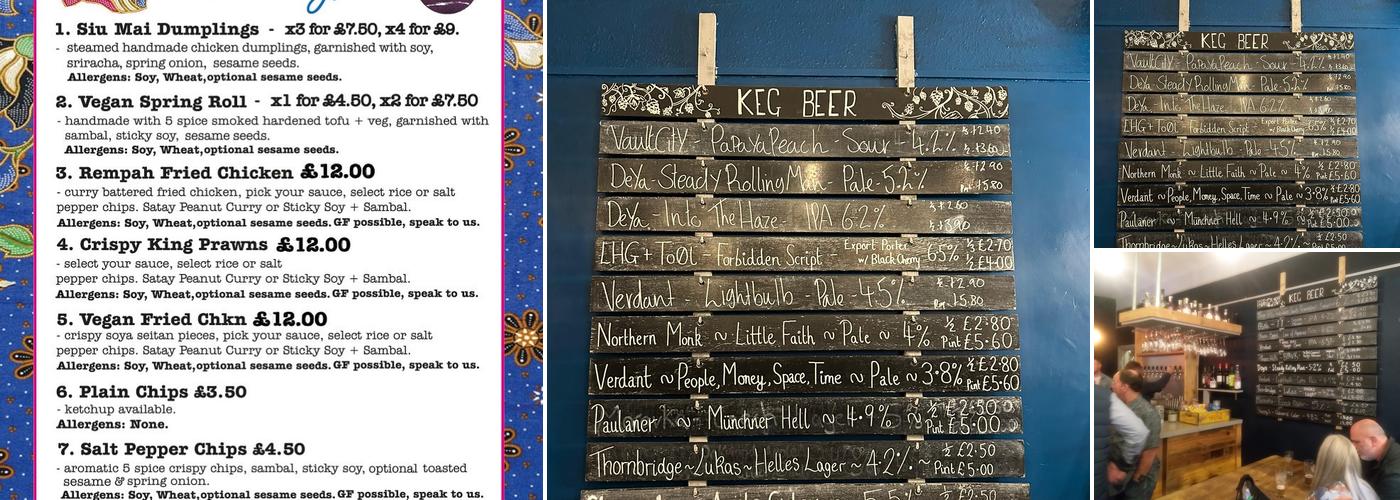 1. Siu Mai Dumplings - x3 for £7.50, x4 for £9.
- steamed handmade chicken dumplings, garnished with soy,
sriracha, spring onion, sesame seeds.
Allergens: Soy, Wheat,optional sesame seeds.
2. Vegan Spring Roll - x1 for £4.50, x2 for £7.50
- handmade with 5 spice smoked hardened tofu + veg, garnished with
sambal, sticky soy, sesame seeds.
Allergens: Soy, Wheat,optional sesame seeds.
3. Rempah Fried Chicken £12.00
- curry battered fried chicken, pick your sauce, select rice or salt
pepper chips. Satay Peanut Curry or Sticky Soy + Sambal.
Allergens: Soy, Wheat,optional sesame seeds. GF possible, speak to us.
4. Crispy King Prawns £12.00
- select your sauce, select rice or salt
pepper chips. Satay Peanut Curry or Sticky Soy + Sambal.
Allergens: Soy, Wheat,optional sesame seeds. GF possible, speak to us.
5. Vegan Fried Chkn £12.00
- crispy soya seitan pieces, pick your sauce, select rice or salt
pepper chips. Satay Peanut Curry or Sticky Soy + Sambal.
Allergens: Soy, Wheat,optional sesame seeds. GF possible, speak to us.
6. Plain Chips £3.50
- ketchup available.
Allergens: None.
7. Salt Pepper Chips £4.50
- aromatic 5 spice crispy chips, sambal, sticky soy, optional toasted
sesame & spring onion.
Allergens: Soy, Wheat,optional sesame seeds. GF possible, speak to us.
KEG BEER
VaultCity - PapayaPeach - Sour - 4.2%
DeYa - Steady Rolling Man - Pale - 5.2%
DeYa - In to The Haze - IPA 6.2%
EHG + ToØL - Forbidden Script - Export Porter w/ Black Cherry 6.5% ½ £2.70 ⅔ £4.00
Verdant - Lightbulb - Pale - 4.5% ½ £2.90 Pint £5.80
Northern Monk ~ Little Faith ~ Pale ~ 4% ½ £2.80 Pint £5.60
Verdant ~ People, Money, Space, Time ~ Pale ~ 3.8% ½ £2.80 Pint £5.60
Paulaner ~ Münchner Hell ~ 4.9% ~ ½ £2.50 Pint £5.00
Thornbridge ~ Lukas ~ Helles Lager ~ 4.2% ~ ½ £2.50 Pint £5.00
KEG BEER
VaultCity - PapayaPeach - Sour - 4.2%
DeYa - Steady Rolling Man - Pale - 5.2%
DeYa - In to The Haze - IPA 6.2%
EHG + ToØL - Forbidden Script - Export Porter w/ Black Cherry 6.5% £2.70 £4.00
Verdant - Lightbulb - Pale - 4.5%
Northern Monk ~ Little Faith ~ Pale ~ 4% ½ £2.80 Pint £5.60
Verdant ~ People, Money, Space, Time ~ Pale ~ 3.8% ½ £2.80 Pint £5.60
Paulaner ~ Münchner Hell ~ 4.9% ~
Thornbridge ~ Lukas ~ Helles Lager ~ 4.2% ~ ½ £2.50
KEG BEER